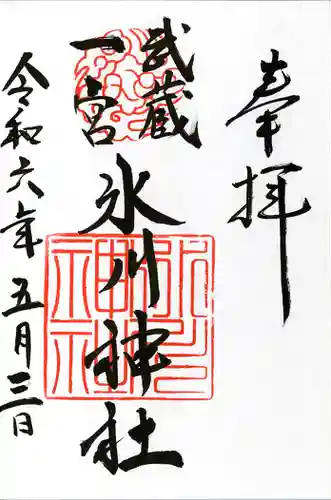 奉拝
武蔵
一宮
氷川神社
令和六年五月三日